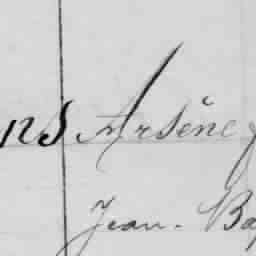 ns Arsène
Jean-Ba